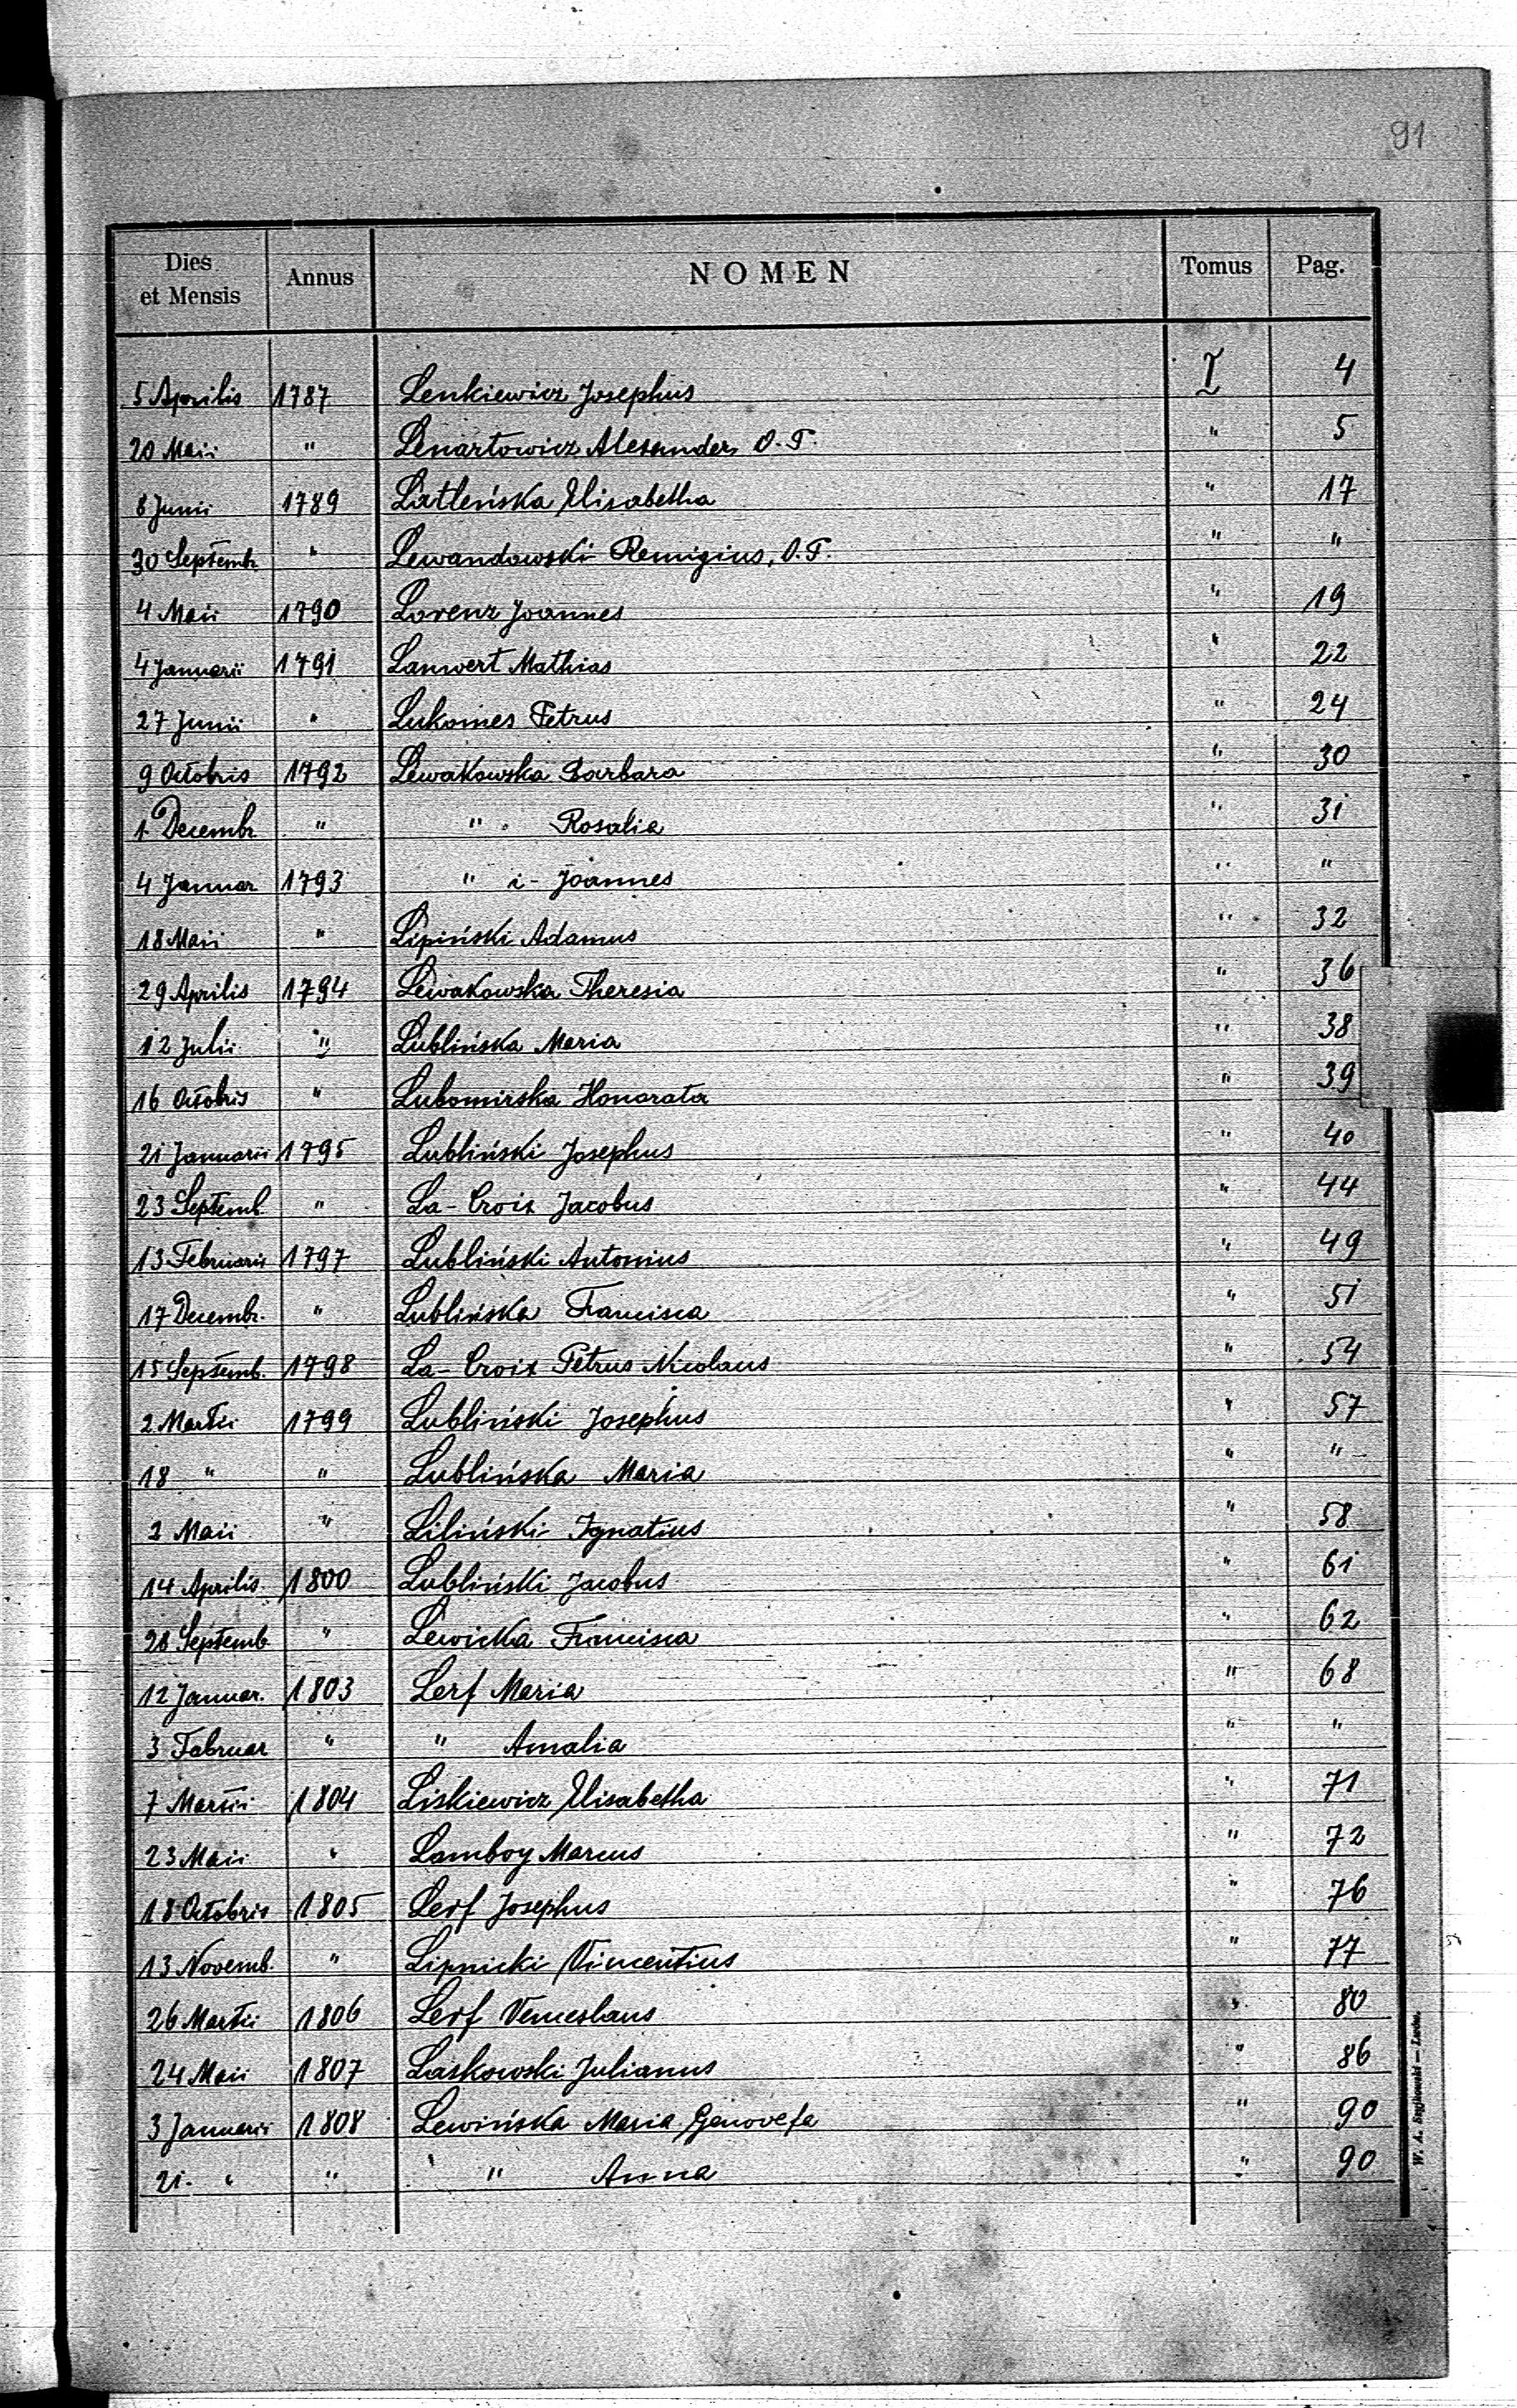 91
Dies et Mensis Annus NOMEN Tomus Pag.
5 Aprilis 1787 Lenkiewicz Josephus I 4
20 Maii " Lenartowicz Alexander, O. T. " 5
8 Junii 1789 Latleńska Elisabetha " 17
30 Septembr. " Lewandowski Remigius, O. T. " "
4 Maii 1790 Lorenz Joannes " 19
4 Januarii 1791 Lanwert Mathias " 22
27 Junii " Lukomes Petrus " 24
9 Octobris 1792 Lewakowska Barbara " 30
1 Decembr. " " Rosalia " 31
4 Januar. 1793 " i - Joannes " "
18 Maii " Lipiński Adamus " 32
29 Aprilis 1794 Lewakowska Theresia " 36
12 Julii " Lublińska Maria " 38
16 Octobris " Lubomirska Honorata " 39
21 Januarii 1795 Lubliński Josephus " 40
23 Septemb. " La-Croix Jacobus " 44
13 Februarii 1797 Lubliński Antonius " 49
17 Decembr. " Lublińska Francisca " 51
15 Septemb. 1798 La-Croix Petrus Nicolaus " 54
2 Martii 1799 Lubliński Josephus " 57
18 " " Lublińska Maria " "
2 Maii " Liliński Ignatius " 58
14 Aprilis 1800 Lubliński Jacobus " 61
28 Septemb. " Lewicka Francisca " 62
12 Januar. 1803 Lerf Maria " 68
3 Februar " " Amalia " "
7 Martii 1804 Liskiewicz Elisabetha " 71
23 Maii " Lamboy Marcus " 72
18 Octobris 1805 Lerf Josephus " 76
13 Novemb. " Lipnicki Vincentius " 77
26 Martii 1806 Lerf Venceslaus " 80
24 Maii 1807 Laskowski Julianus " 86
3 Januarii 1808 Lewińska Maria Genovefa " 90
21. " " " Anna " 90